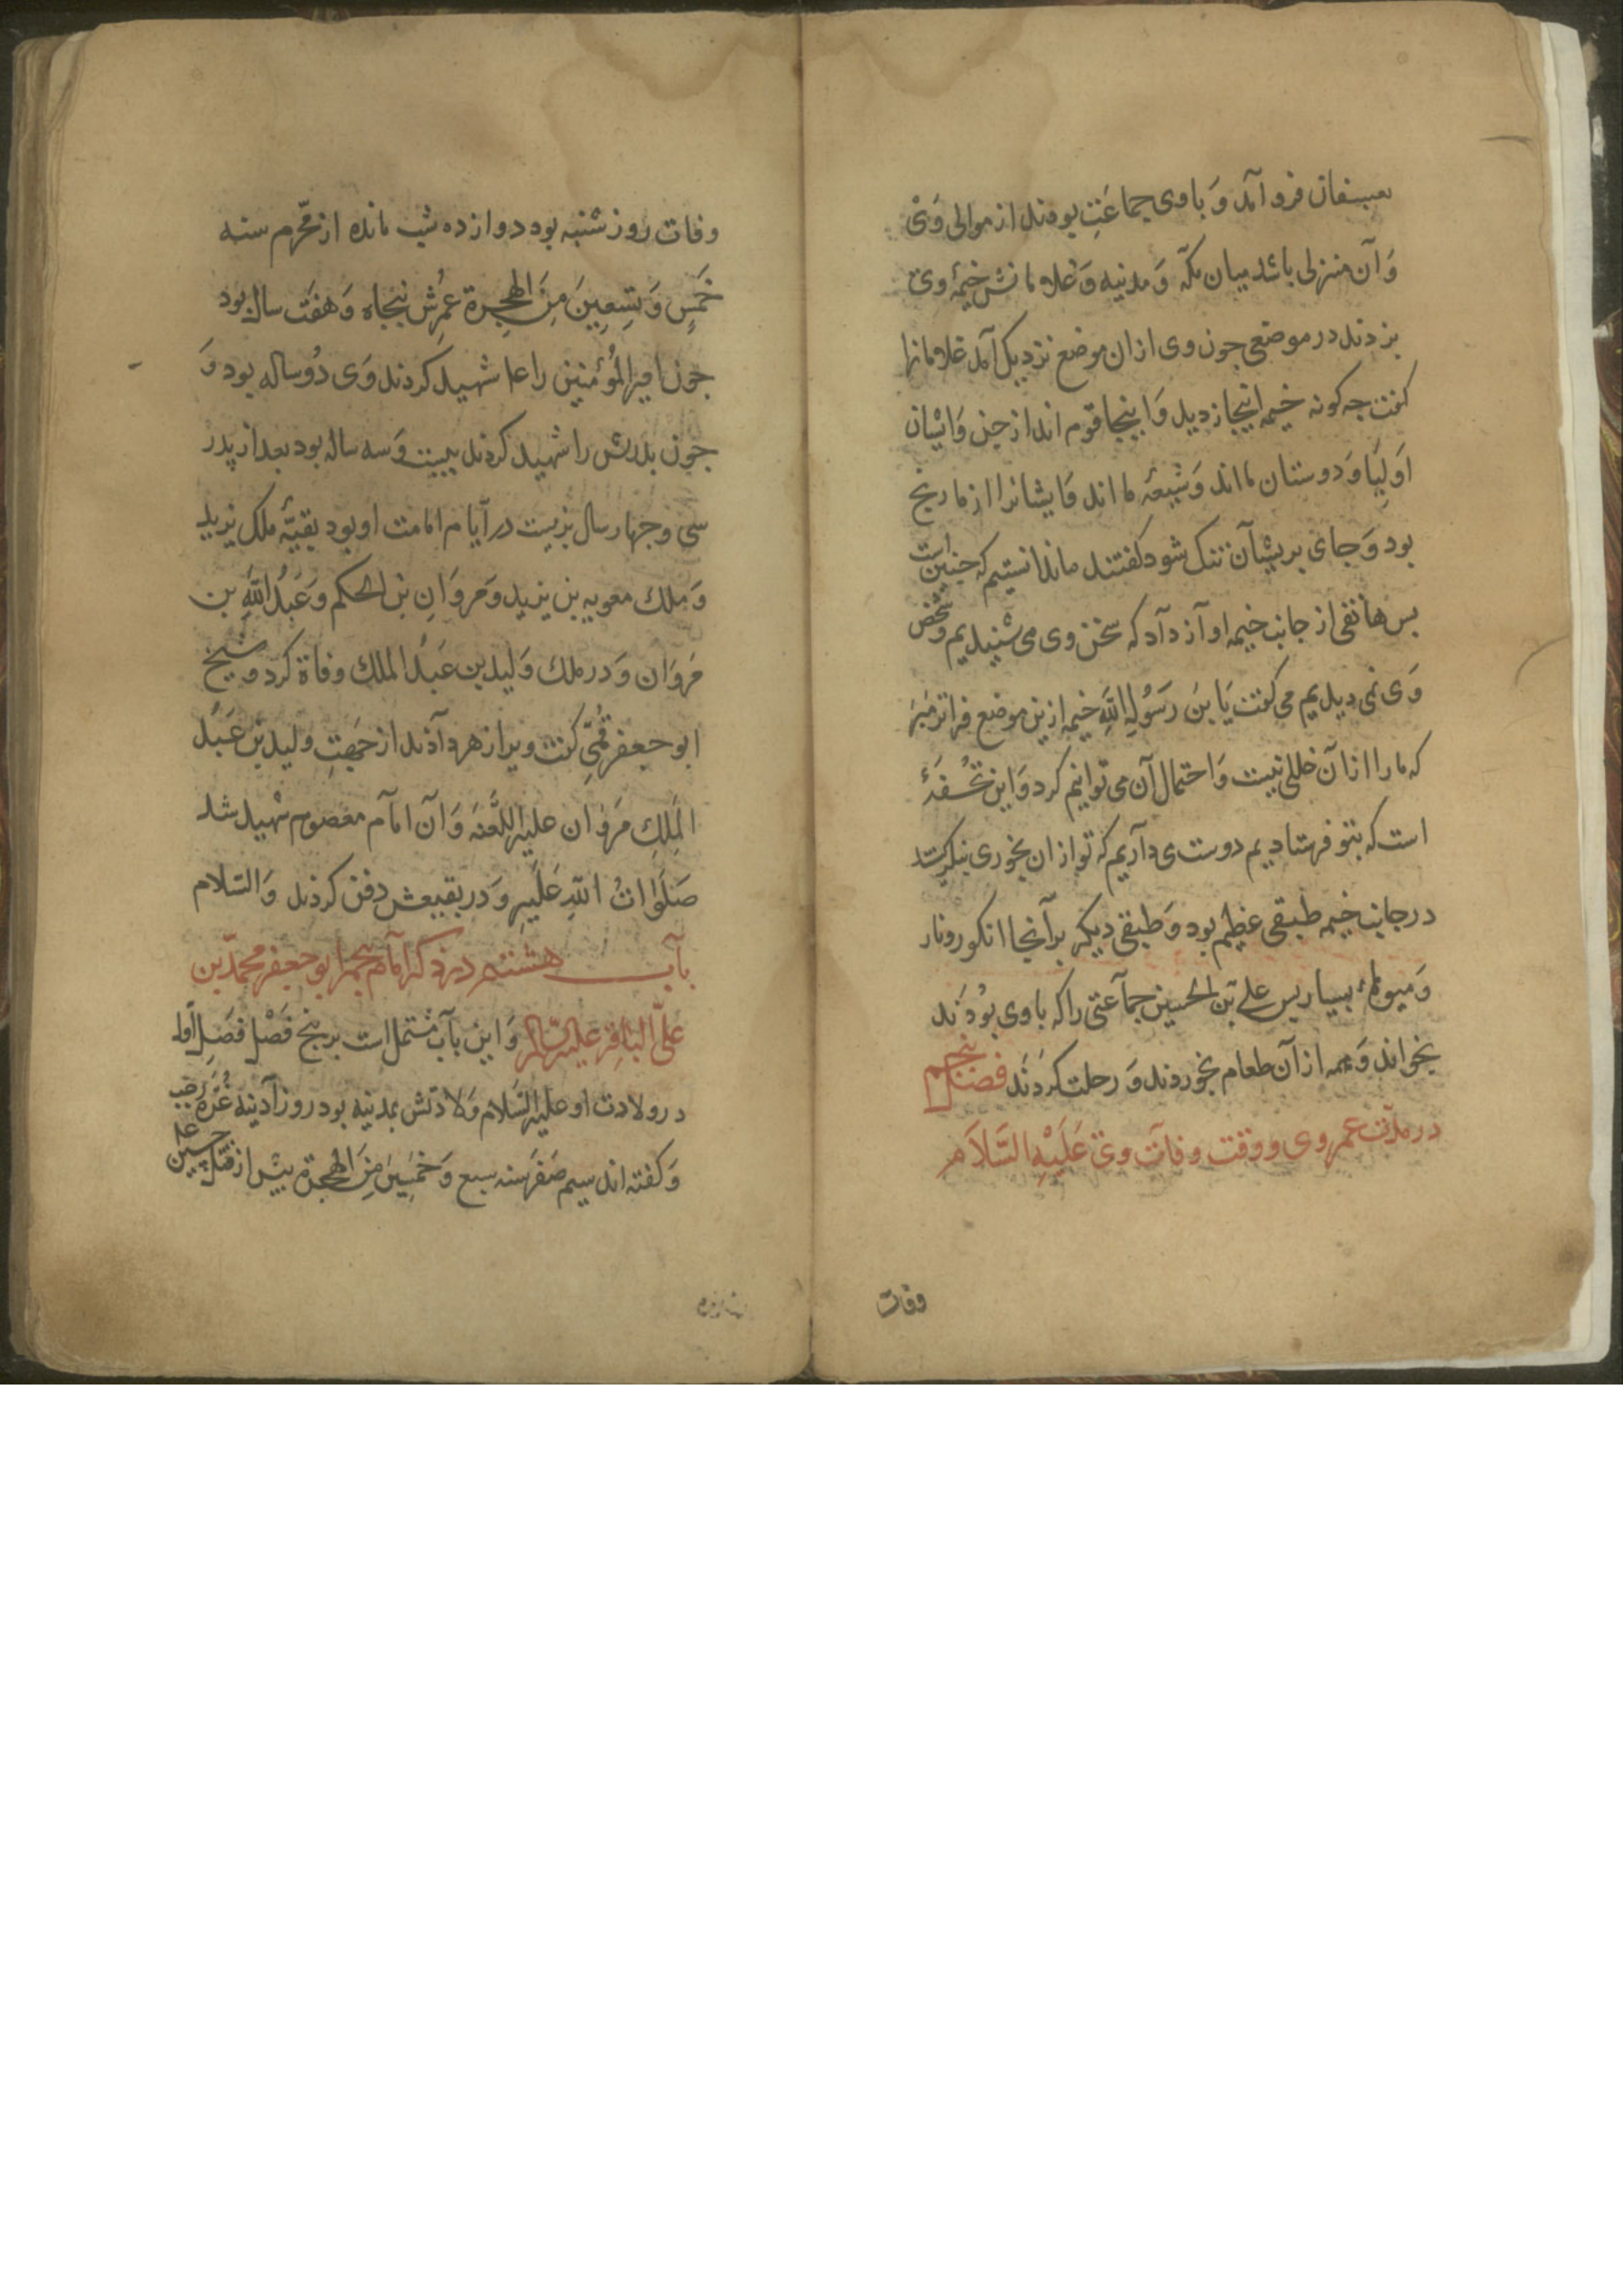 بعسفان فرو آمد وَ باوى جماعَتِ بوذند از موالى وَىْ
وَ آن منزلى باشد ميان مكّه وَ مدينه وَ غلامانش خيمۀ وى
بزدند در موضعى جون وى ازان موضع نزديك آمد غلامانرا
كفت جه كونه خيمه اينجا زديد وَ اينجا قوم اند از جن وَ ايْشان
اوَلِيَا وَ دوستان مااند وَ شيعۀ مااند وَ ايشانرا از ما رنج
بود وَ جاى بريشان تنك شود كفتند ما ندانستيم كه جنين است
بس هاتفى از جانب خيمه اواز داد كه سخن وى مى شنيديم وشخص
وَى نمى ديديم مى كفت يَا بنَ رَسُولِ اللهِ خيمه ازين موضع فراتر مَبَر
كه مارا ازان خللى نيست وَ احتمال آن مى توانيم كرد وَ اين تُحْفَۀ
است كه بتو فرستاديم دوست مى داريم كه تو ازان بخورى بنكرستند
در جانب خيمه طبقى عظيم بود وَ طبقى ديكر برآنجا انكور و نار
وَ ميوهاء بسيار بس على بْن الحسين جماعتى را كه باوى بُودَند
بخواند وَ همه ازآن طعام بخوردند وَ رحلت كردند فصل پنجم
در مدّت عمر وى و وقت وفات وى عَلَيْهِ السَّلاَمِ
وفات
وفات روز شنبه بود دوازده شب مانده از محرّم سنه
خَمَسٍ وَ تِسعِينَ مِنَ الهِجرة عُمرِش پنجاه وَ هفَت سال بود
جون امير المُؤمنين را علی شهيد كردند وَى دُو ساله بود وَ
جون بدرش را شهيد كردند بيست وَ سه ساله بود بعد از پدر
سى و جهار سال بزيست در آيام امامت او بود بقيّۀ ملك يزيد
وَ ملك معويه بن يزيد وَ مروَانِ بن الحكم وَ عَبدُ اللهِ بن
مَروَان وَ در ملك وَليد بن عَبدُ الملك وفاة كرد و شيخ
ابو جعفر قُمِّى كفت ويرا زهر دآدند از جهتِ وليد بن عَبدُ
المَلِكِ مَرْوَان عليهِ اللَّعنَه وَ آن امآم معصوم شهيد شد
صَلَوَاتُ اللهِ عَلَيهِ وَ در بقيعش دفن كردند وَ السّلام
بآب هشتم در ذكر امام پنجم ابو جعفر محمّد بن
علىّ البَاقِر عليه السّلام وَ اين بآب مشتمل است بر پنج فَصْل فصَلِ اوّل
در ولادت او عليهِ السّلام وَلادتش بمدينه بود روز آدينه غُرّه رجب
وَ كفته اند سيم صَفَر سنه سبع وَ خمَسينَ مِنَ الهجرة پيش از قتل حسين علی